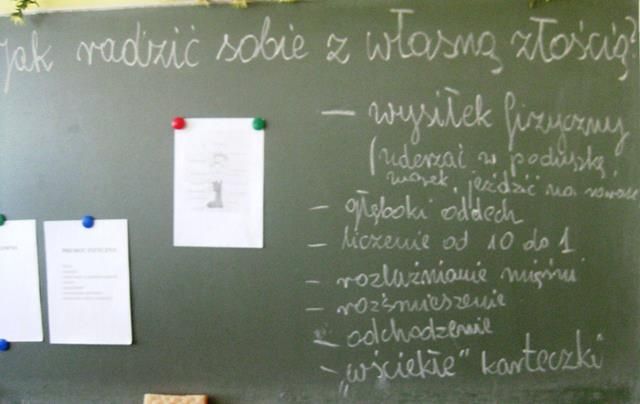 Jak radzić sobie z własną złością?
— wysiłek fizyczny
(uderzać w poduszkę,
worek, jeździć na rowerze
— głęboki oddech
— liczenie od 10 do 1
— rozluźnianie mięśni
— rozśmieszenie
— odchodzenie
— „wściekłe" karteczki
PRZEMOC FIZYCZNA